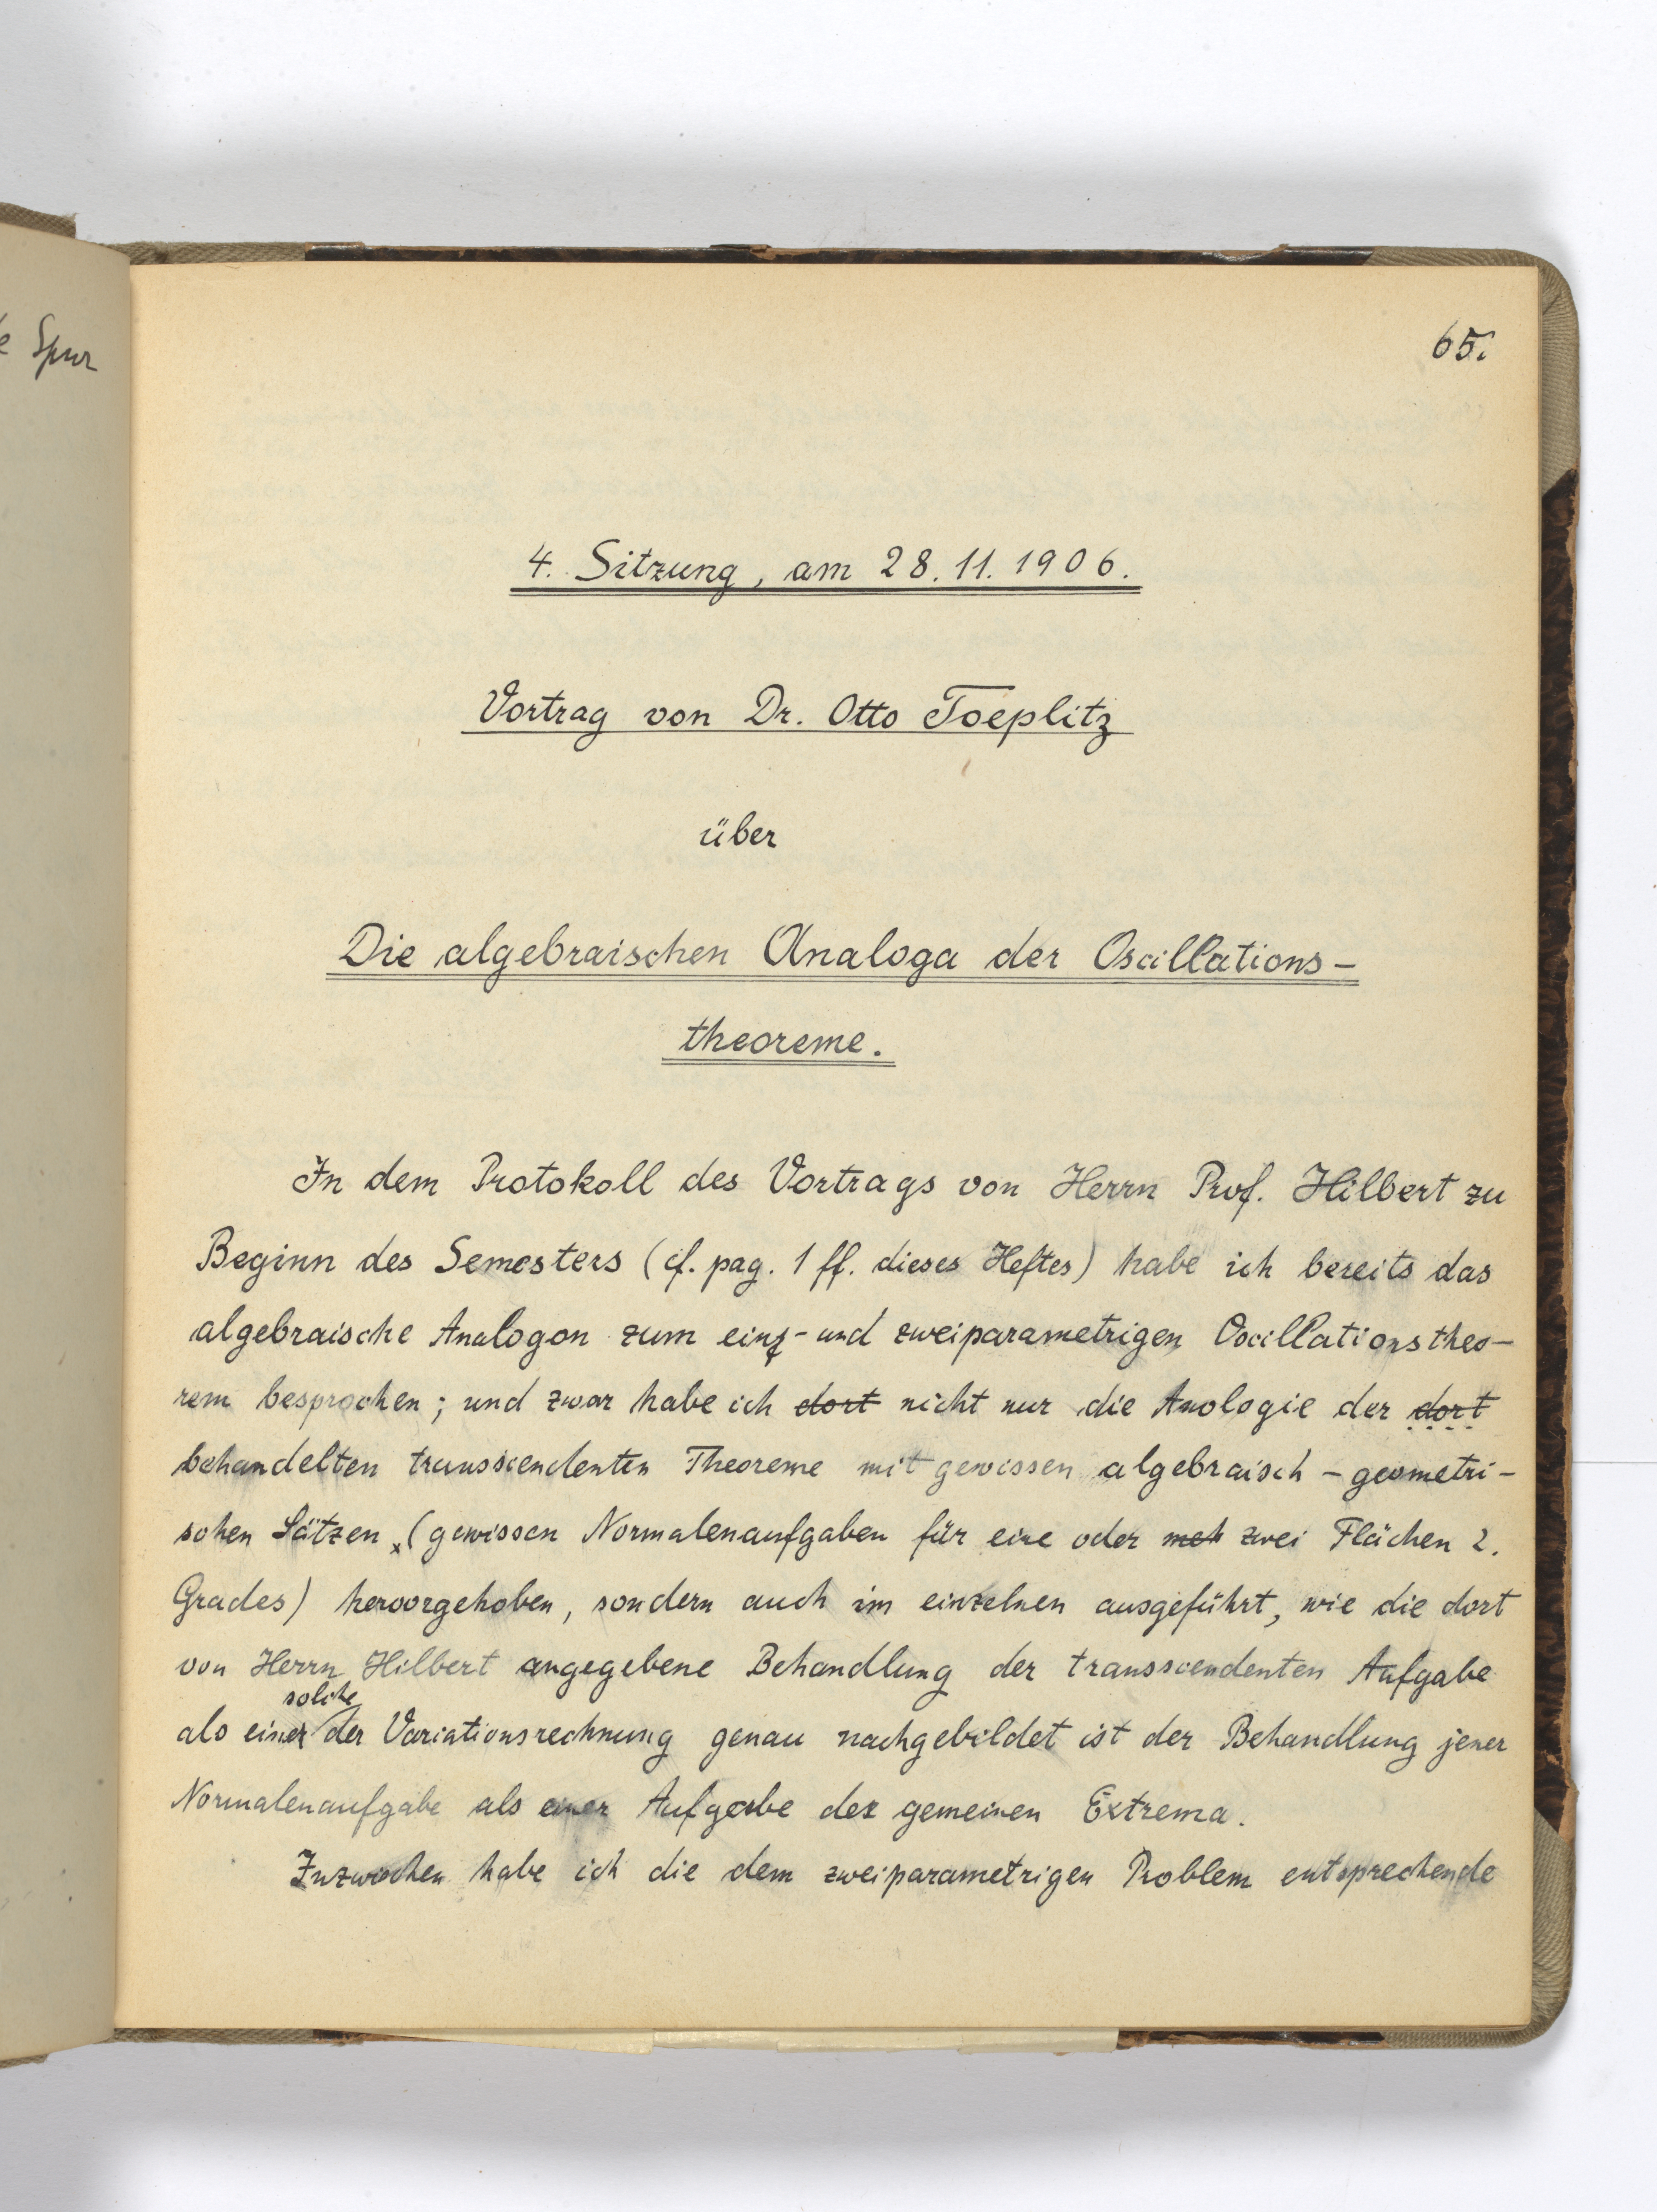 e Spur
65.
4. Sitzung, am 28.11.1906.
Vortrag von Dr. Otto Toeplitz
über
Die algebraischen Analoga der Oscillations-
theoreme.
In dem Protokoll des Vortrags von Herrn Prof. Hilbert zu
Beginn des Semesters (cf. pag. 1 ff. dieses Heftes) habe ich bereits das
algebraische Analogon zum ein- und zweiparametrigen Oscillationstheo-
rem besprochen; und zwar habe ich dort nicht nur die Analogie der dort
behandelten transscendenten Theoreme mit gewissen algebraisch-geometri-
schen Sätzen (gewissen Normalenaufgaben für eine oder meh zwei Flächen 2.
Grades) hervorgehoben, sondern auch im einzelnen ausgeführt, wie die dort
von Herrn Hilbert angegebene Behandlung der transscendenten Aufgabe
solche
als einer der Variationsrechnung genau nachgebildet ist der Behandlung jener
Normalenaufgabe als einer Aufgabe der gemeinen Extrema.
Inzwischen habe ich die dem zweiparametrigen Problem entsprechende